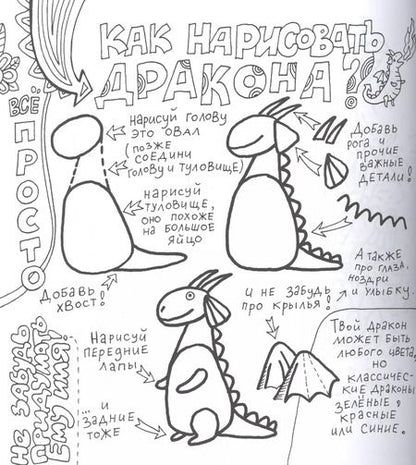 КАК НАРИСОВАТЬ
ДРАКОНА?
ВСЁ
ПРОСТО
Нарисуй голову
это овал
(позже
соедини
голову и туловище)
Нарисуй
туловище,
оно похоже
на большое
яйцо
Добавь
хвост!
Добавь
рога и
прочие
важные
детали!
А также
про глаза,
ноздри
и улыбку.
и не забудь
про крылья!
Нарисуй
передние
лапы,
... и
задние
тоже
Твой дракон
может быть
любого цвета,
но
классичес-
кие драконы
зелёные,
красные
или синие.
Не забудь
придумать
ему имя!